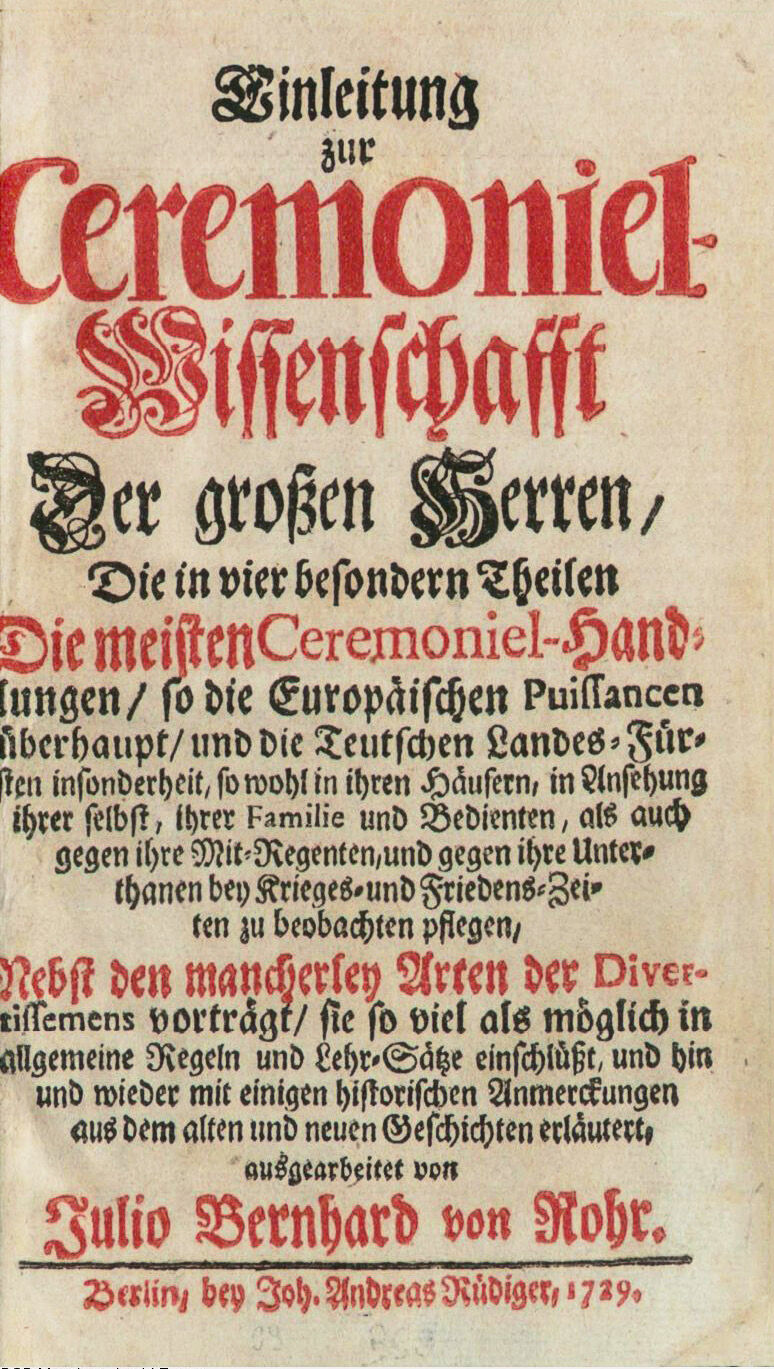 Einleitung
zur
Ceremoniel-
Wissenschafft
Der großen Herren/
Die in vier besondern Theilen
Die meisten Ceremoniel-Hand-
lungen/ so die Europäischen Puissancen
überhaupt/ und die Teutschen Landes-Für-
sten insonderheit, so wohl in ihren Häusern, in Ansehung
ihrer selbst, ihrer Familie und Bedienten, als auch
gegen ihre Mit-Regenten, und gegen ihre Unter-
thanen bey Krieges- und Friedens-Zei-
ten zu beobachten pflegen,
Nebst den mancherley Arten der Diver-
tissemens vorträgt/ sie so viel als möglich in
allgemeine Regeln und Lehr-Sätze einschlüßt, und hin
und wieder mit einigen historischen Anmerckungen
aus dem alten und neuen Geschichten erläutert,
ausgearbeitet von
Julio Bernhard von Rohr.
Berlin, bey Joh. Andreas Rüdiger, 1729.